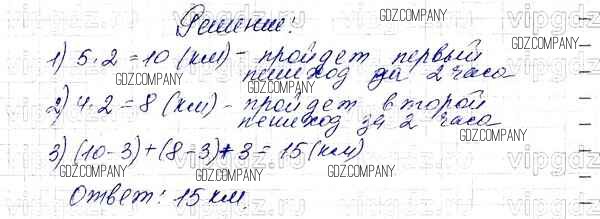 Решение:
1) 5·2=10 (км) - пройдет первый
пешеход за 2 часа
2) 4·2=8 (км) - пройдет второй
пешеход за 2 часа
3) (10-3)+(8-3)+3=15 (км)
Ответ: 15 км.
GDZ.COMPANY
GDZ.COMPANY
GDZ.COMPANY
GDZ.COMPANY
GDZ.COMPANY
GDZ.COMPANY
GDZ.COMPANY
vipgdz.ru